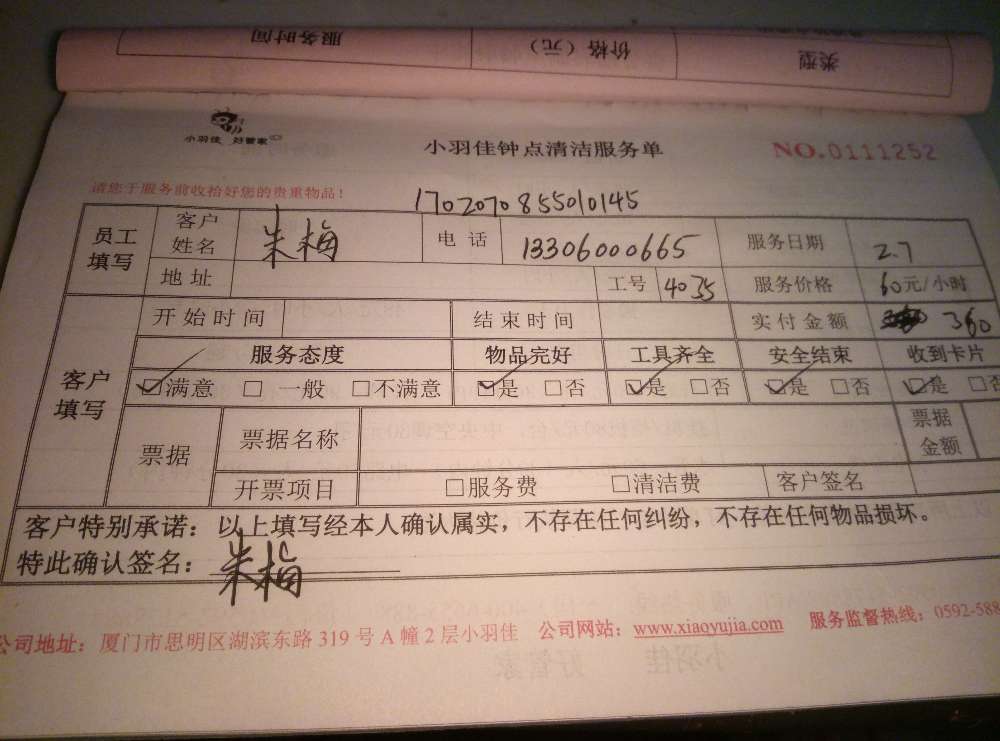 服务时间 价格（元） 类型
小羽佳 好管家
小羽佳钟点清洁服务单 NO.0111252
请您于服务前收拾好您的贵重物品！
170207085501 0145
员工填写 客户姓名 朱梅 电话 13306000665 服务日期 2.7
地址 工号 4035 服务价格 60元/小时
客户填写 开始时间 结束时间 实付金额 360
服务态度 物品完好 工具齐全 安全结束 收到卡片
☑满意 □一般 □不满意 ☑是 □否 ☑是 □否 ☑是 □否 ☑是 □否
票据 票据名称 票据金额
开票项目 □服务费 □清洁费 客户签名
客户特别承诺：以上填写经本人确认属实，不存在任何纠纷，不存在任何物品损坏。
特此确认签名：朱梅
公司地址：厦门市思明区湖滨东路 319 号 A 幢 2 层小羽佳 公司网站：www.xiaoyujia.com 服务监督热线：0592-588
小羽佳 好管家